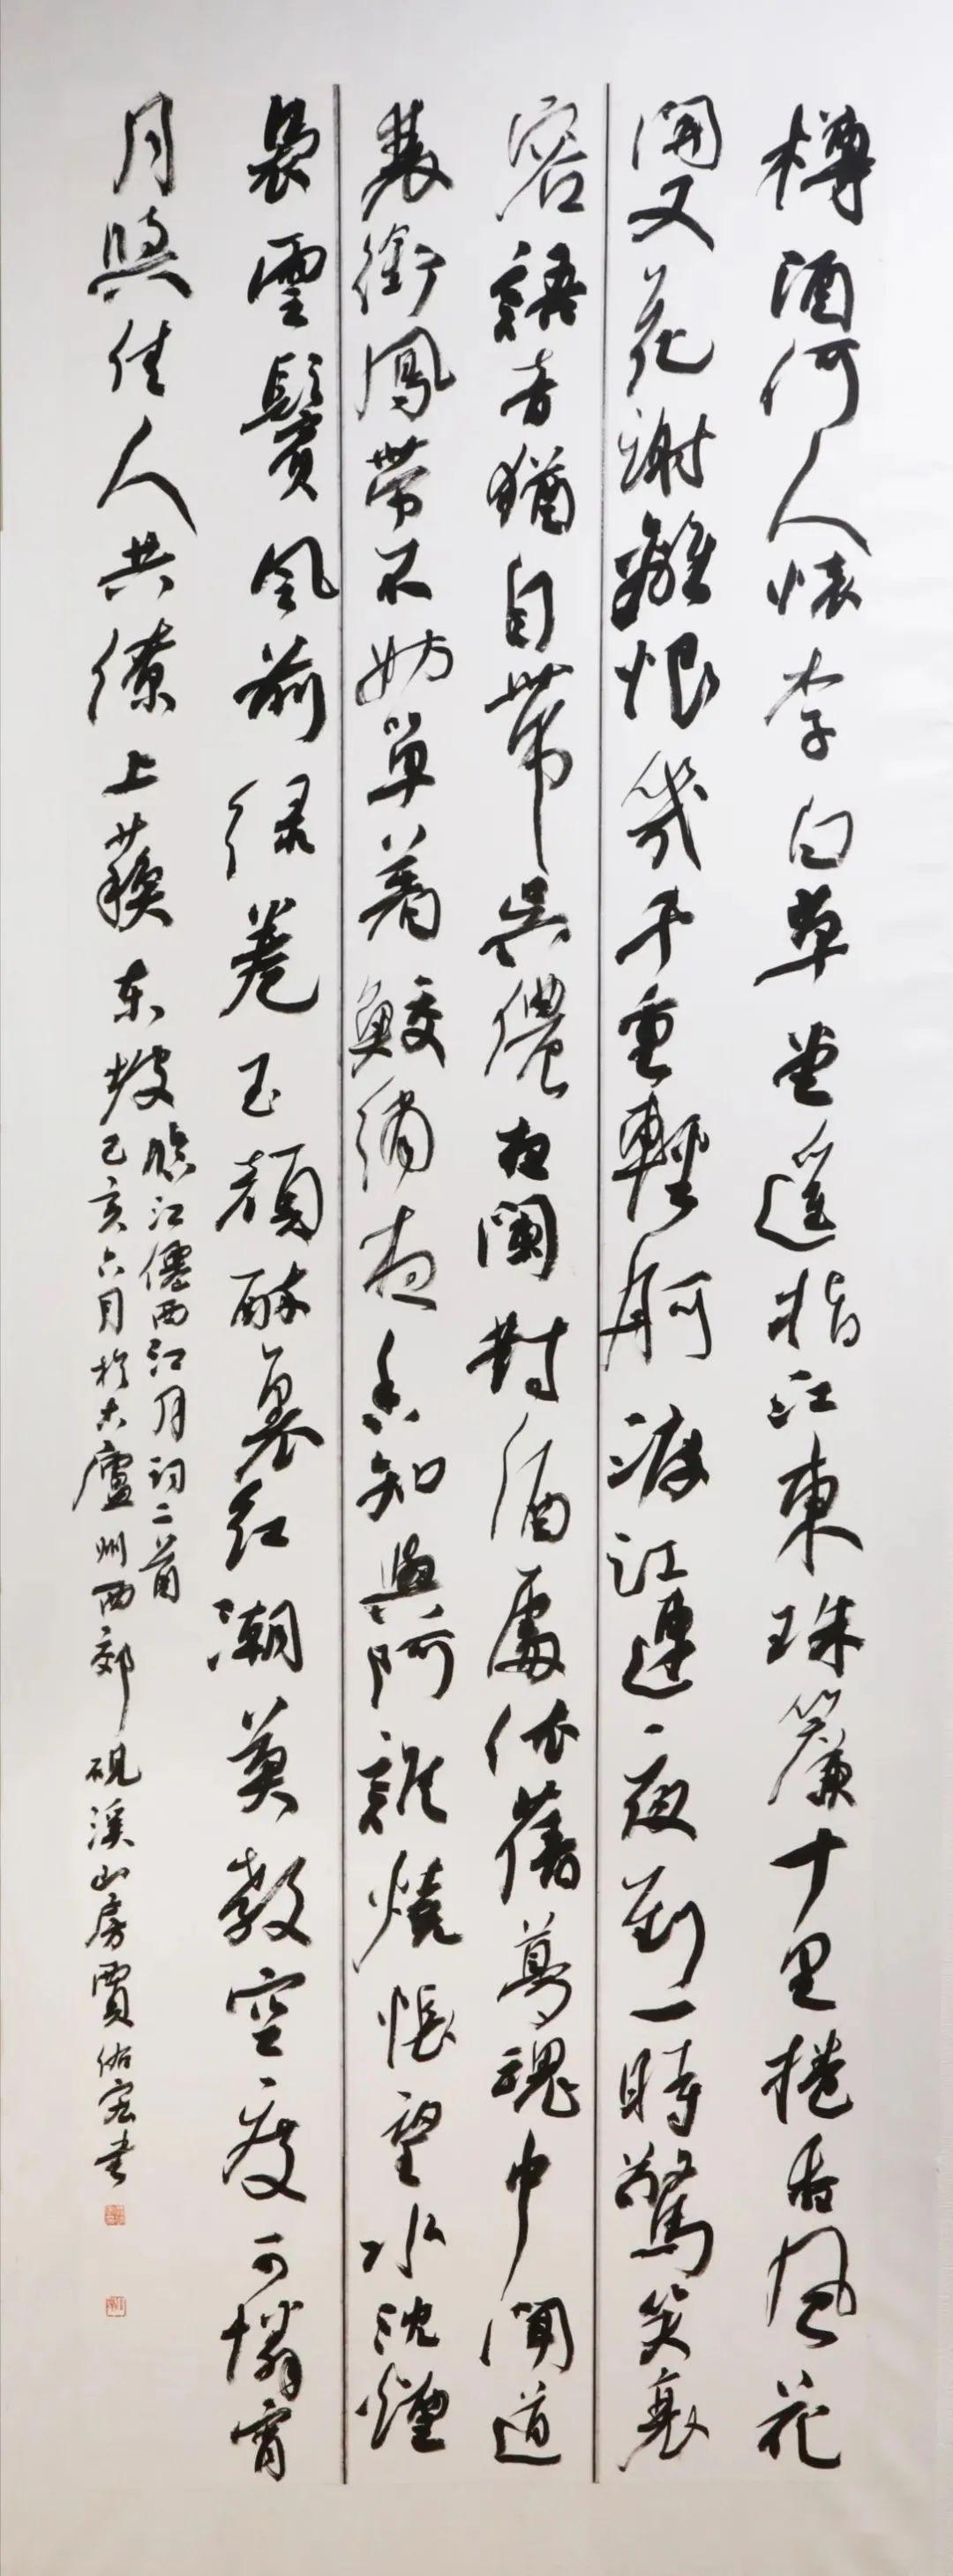 樽酒何人懷李白草堂遥指江東珠簾十里捲香風花
開又花謝離恨幾千重輕舸渡江連夜到一時驚笑衰
容語音猶自帶吳儂夜闌對酒處依舊夢魂中聞道
雙銜鳳帶不妨單著鮫綃夜香知與阿誰燒悵望水沈煙
裊雲鬢風前緑卷玉顏醉裏紅潮莫教空度可憐宵
月與佳人共僚上蘇東坡
臨江僊西江月詞二首
己亥六月於古廬州西郊硯溪山房賈佑宏書